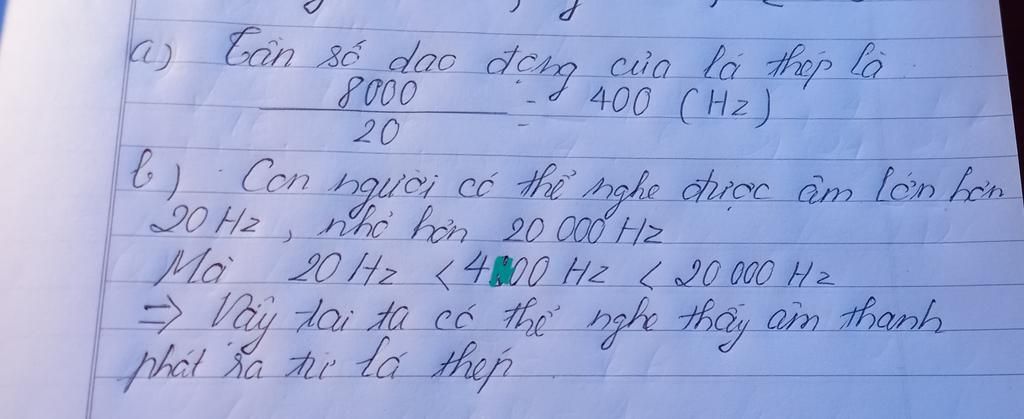 a) Tần số dao động của lá thép là
8000 = 400 (Hz)
20
b) Con người có thể nghe được âm lớn hơn
20 Hz, nhỏ hơn 20 000 Hz
Mà 20 Hz < 400 Hz < 20 000 Hz
⇒ Vậy tai ta có thể nghe thấy âm thanh
phát ra từ lá thép.